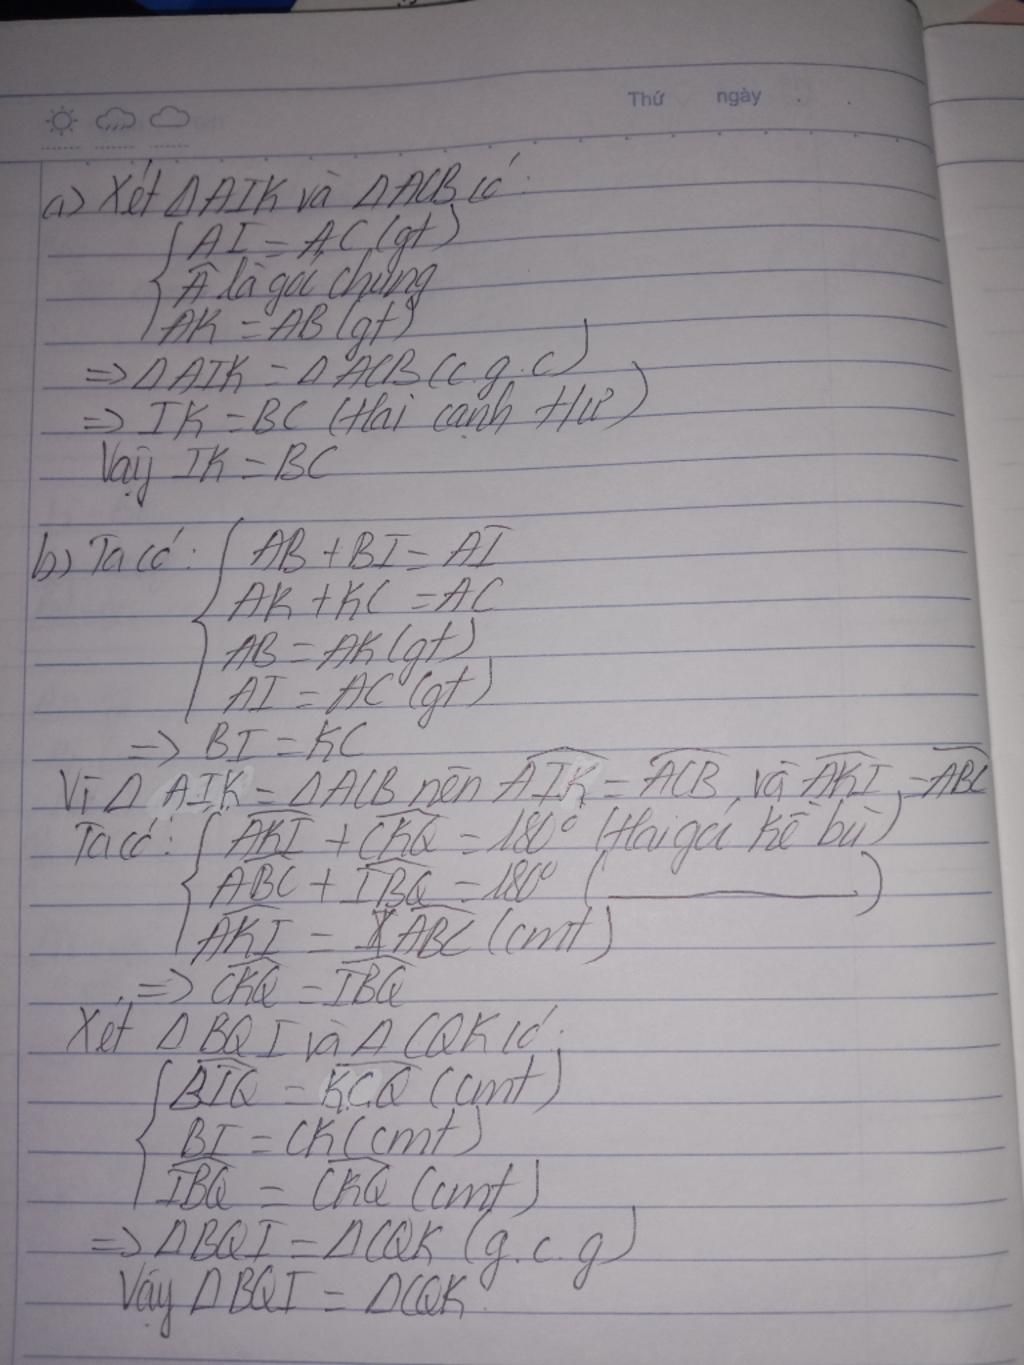 Thứ ngày
a) Xét ΔAIK và ΔACB có:
AI = AC (gt)
Â là góc chung
AK = AB (gt)
=> ΔAIK = ΔACB (c.g.c)
=> IK = BC (Hai cạnh tư)
Vậy IK = BC
b) Ta có: AB + BI = AI
AK + KC = AC
AB = AK (gt)
AI = AC (gt)
=> BI = KC
Vì ΔAIK = ΔACB nên \widehat{AIK} = \widehat{ACB}, và \widehat{AKI} = \widehat{ABC}
Ta có: \widehat{AKI} + \widehat{CKQ} = 180° (Hai góc kề bù)
\widehat{ABC} + \widehat{IBQ} = 180° (________)
\widehat{AKI} = \widehat{ABC} (cmt)
=> \widehat{CKQ} = \widehat{IBQ}
Xét ΔBQI và ΔCQK có:
\widehat{BIQ} = \widehat{KCQ} (cmt)
BI = CK (cmt)
\widehat{IBQ} = \widehat{CKQ} (cmt)
=> ΔBQI = ΔCQK (g.c.g)
Vậy ΔBQI = ΔCQK